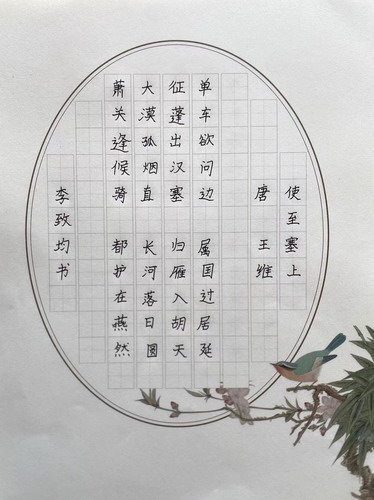 使至塞上
唐 王维
单车欲问边 属国过居延
征蓬出汉塞 归雁入胡天
大漠孤烟直 长河落日圆
萧关逢候骑 都护在燕然
李致均书